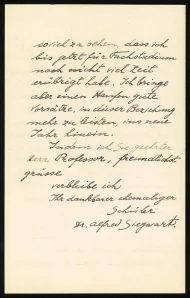 so viel zu sehen, dass ich
bis jetzt für Fachstudium
noch nicht viel Zeit
erübrigt habe. Ich bringe
aber einen Haufen gute
Vorsätze, in dieser Beziehung
mehr zu leisten, ins neue
Jahr hinein.
Indem ich Sie, geehrter
Herr Professor, freundlichst
grüsse
verbleibe ich
Ihr dankbarer ehemaliger
Schüler
Dr. Alfred Siegwart.